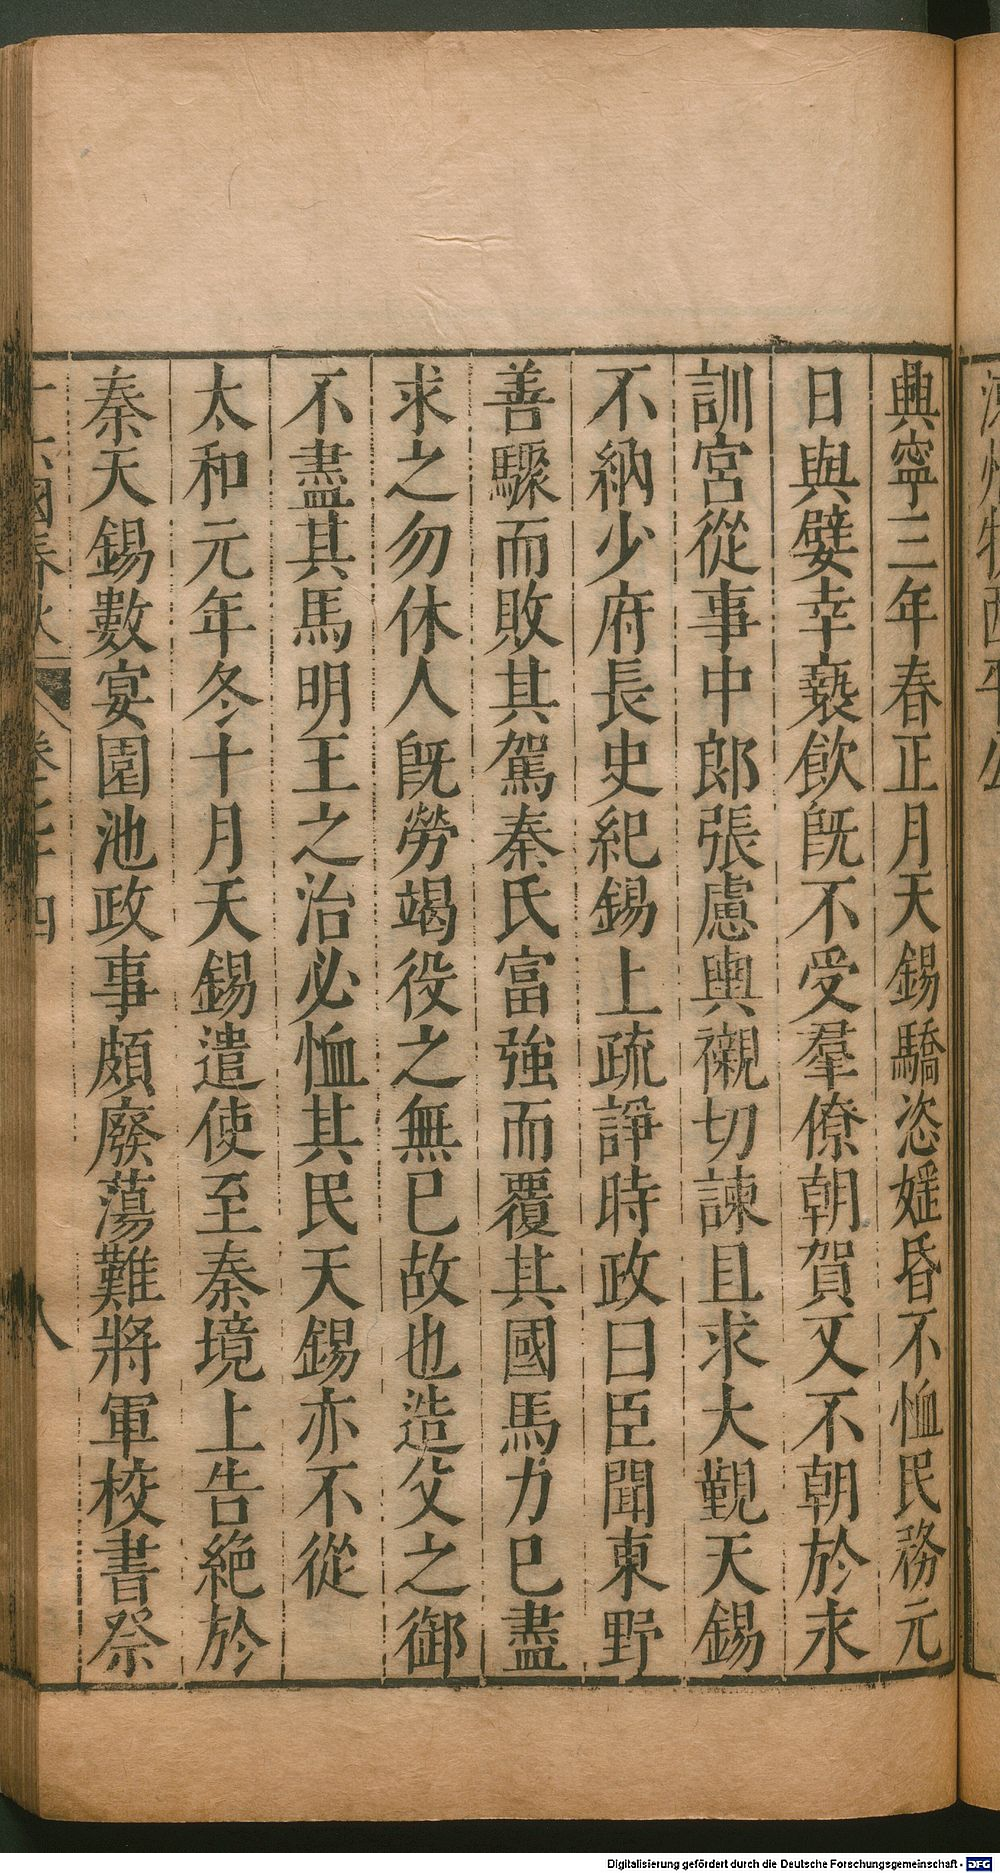 興寧三年春正月天錫驕恣婬昏不恤民務元
日與嬖幸褻飲旣不受羣僚朝賀又不朝於永
訓宮從事中郎張慮輿櫬切諫且求大覲天錫
不納少府長史紀錫上疏諍時政曰臣聞東野
善驟而敗其駕秦氏富強而覆其國馬力巳盡
求之勿休人旣勞竭役之無巳故也造父之御
不盡其馬明王之治必恤其民天錫亦不從
太和元年冬十月天錫遣使至秦境上告絶於
秦天錫數宴園池政事頗廢蕩難將軍校書祭
十六國春秋 卷七十四 八
Digitalisierung gefördert durch die Deutsche Forschungsgemeinschaft - DFG